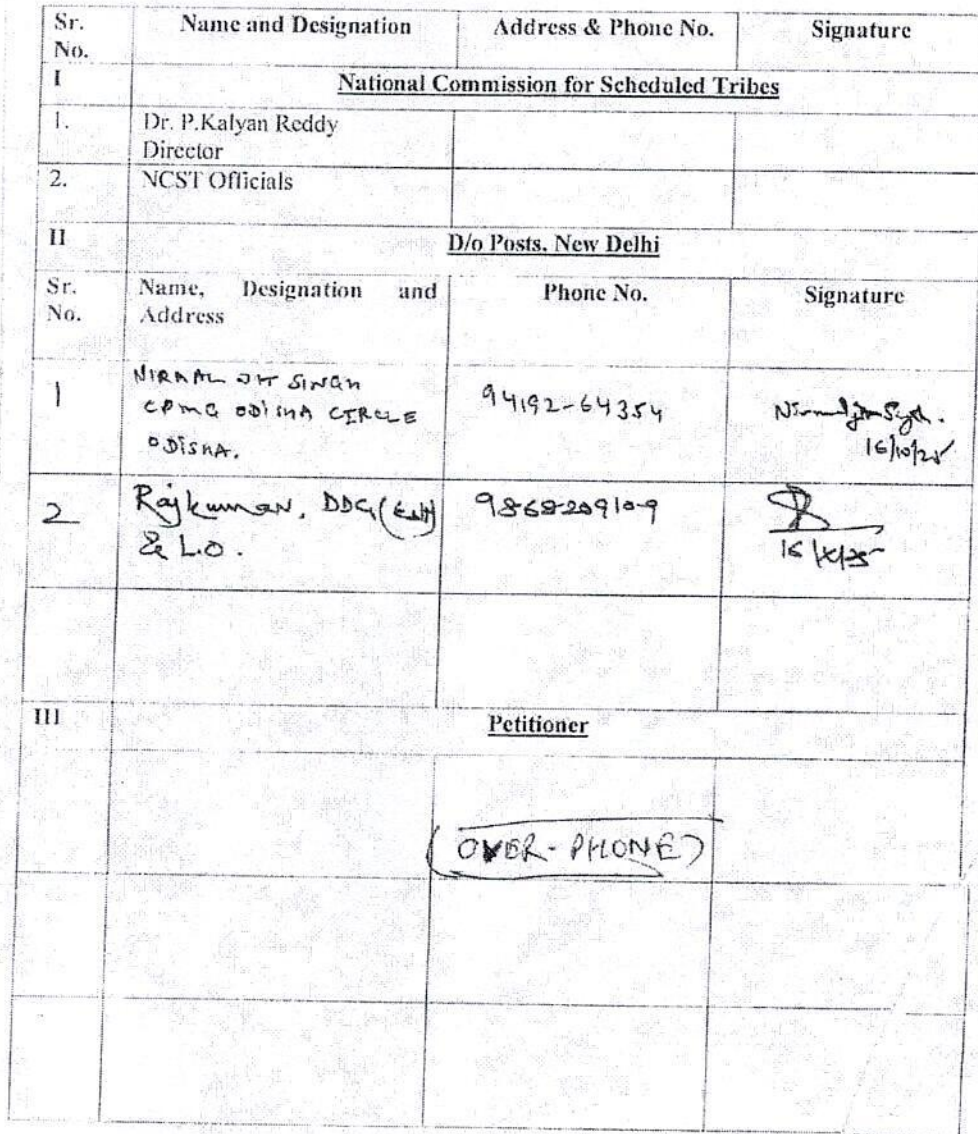 Sr. No. Name and Designation Address & Phone No. Signature
I National Commission for Scheduled Tribes
1. Dr. P.Kalyan Reddy
Director
2. NCST Officials
II D/o Posts, New Delhi
Sr. No. Name, Designation and Address Phone No. Signature
1 NIRMAL JIT SINGH 94192-64354
CPMG ODISHA CIRCLE
ODISHA. 16/10/25
2 Rajkumar, DDG (Estt) 9868209109
& L.O. 16/X/25
III Petitioner
(OVER-PHONE)